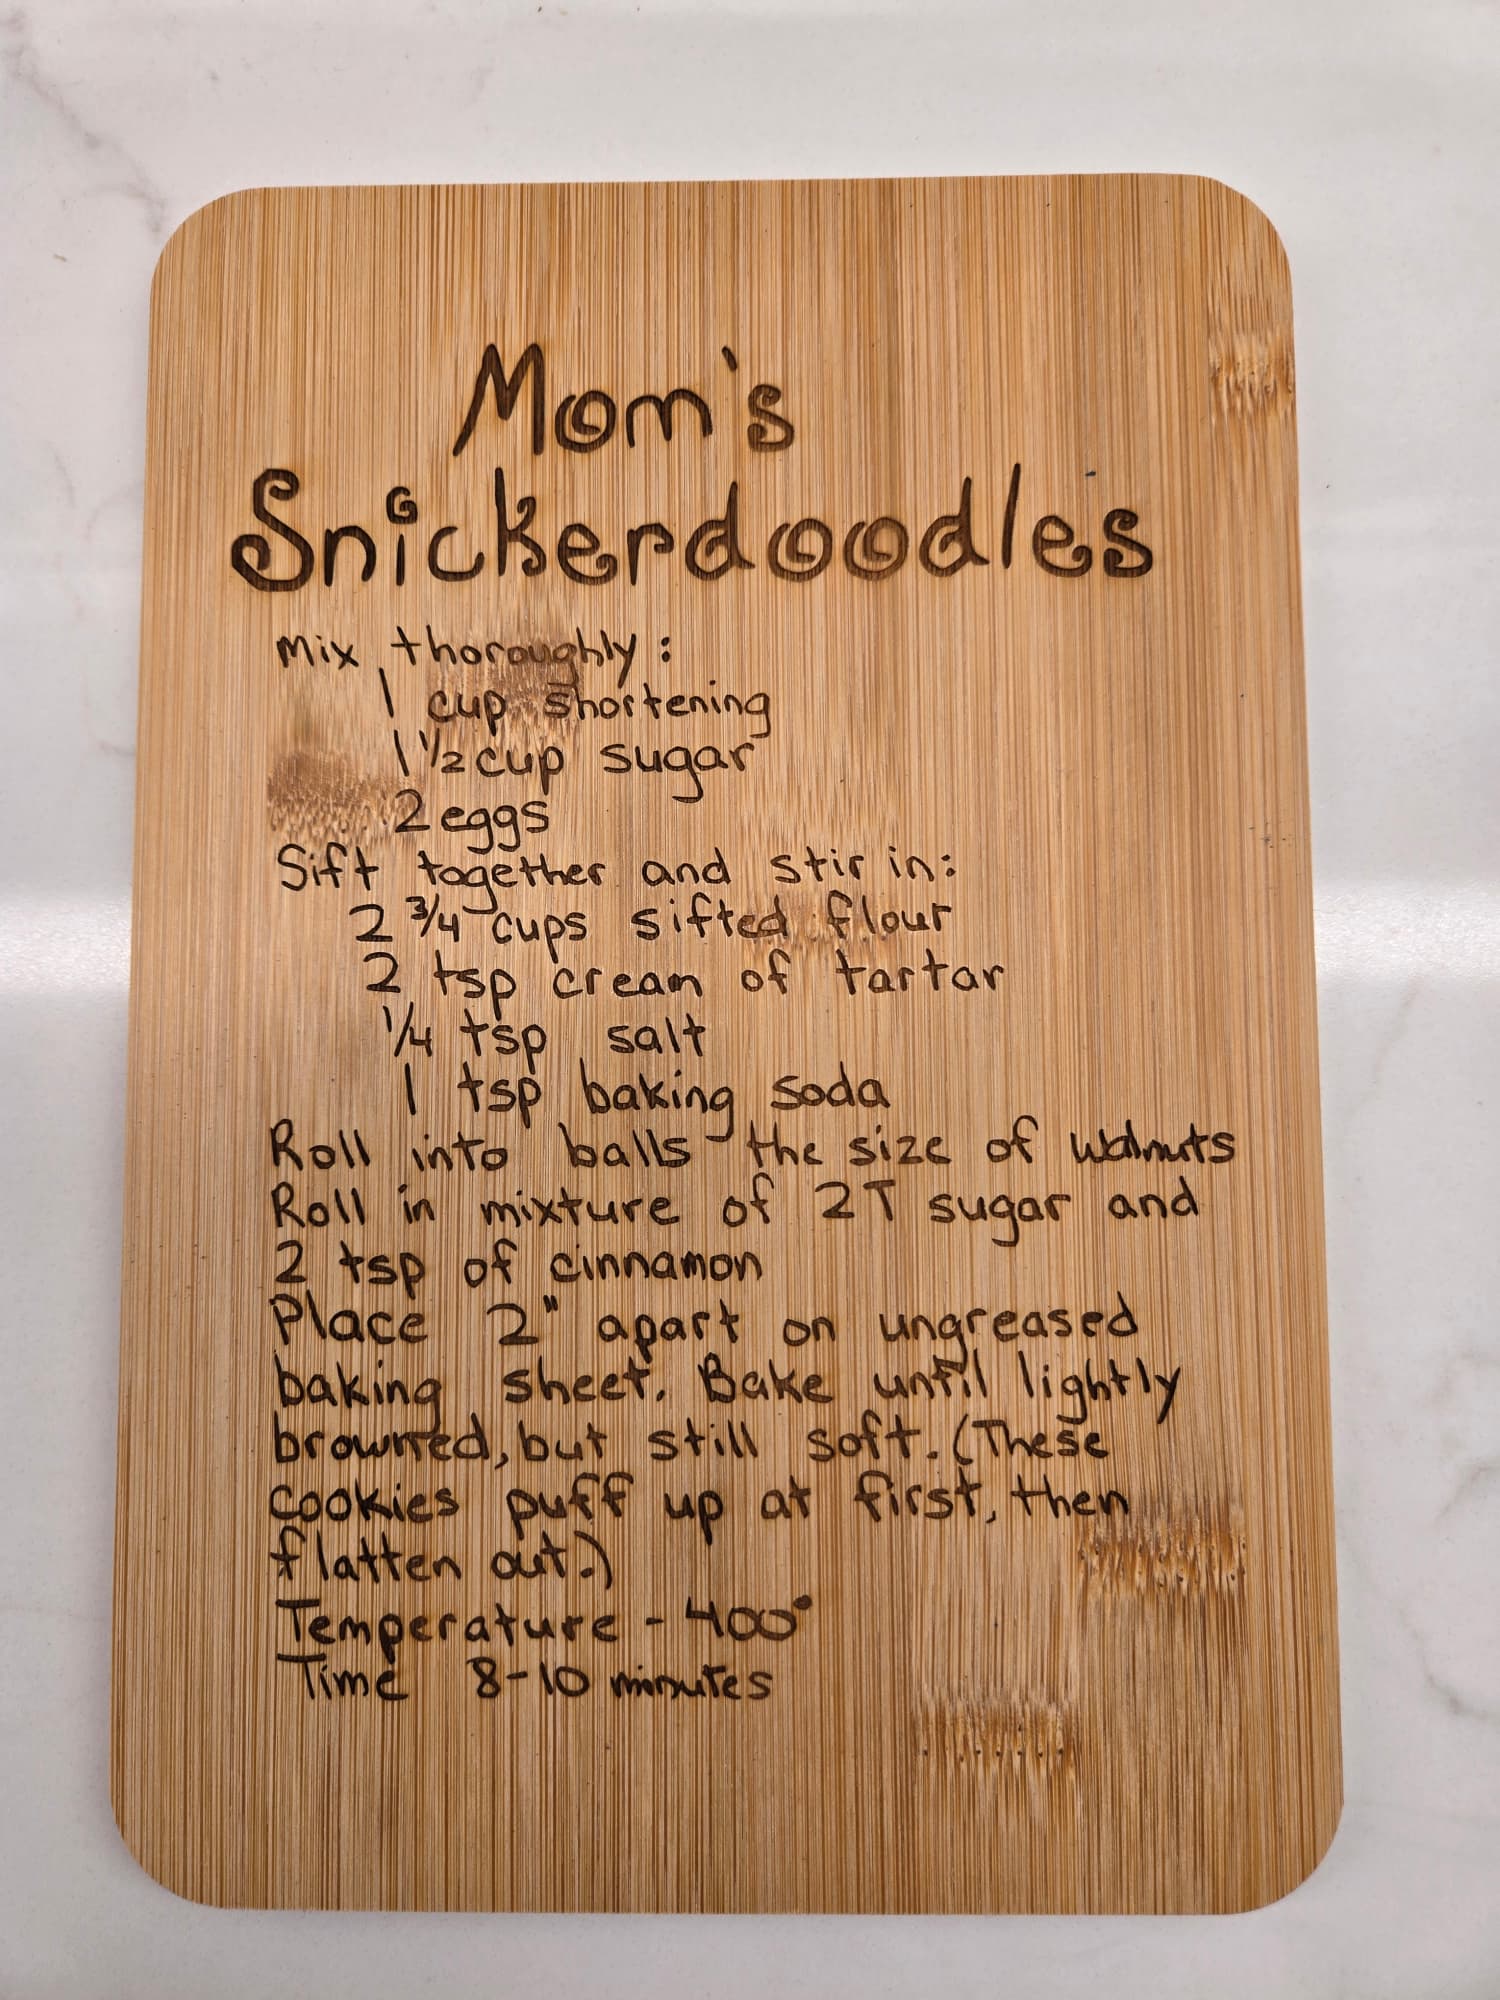 Mom's
Snickerdoodles
Mix thoroughly:
1 cup shortening
1 1/2 cup sugar
2 eggs
Sift together and stir in:
2 3/4 cups sifted flour
2 tsp cream of tartar
1/4 tsp salt
1 tsp baking soda
Roll into balls the size of walnuts
Roll in mixture of 2T sugar and
2 tsp of cinnamon
Place 2" apart on ungreased
baking sheet. Bake until lightly
browned, but still soft. (These
cookies puff up at first, then
flatten out.)
Temperature - 400°
Time 8-10 minutes